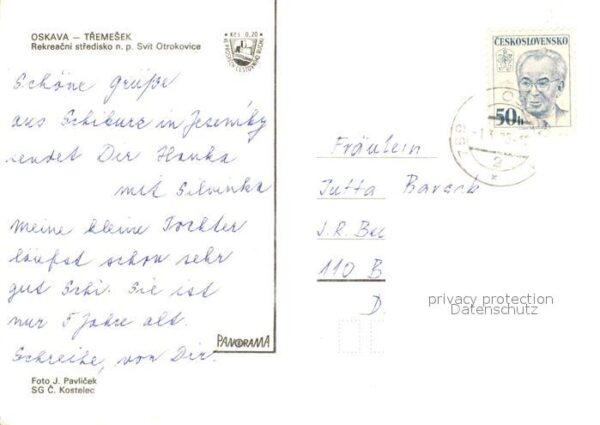 OSKAVA — TŘEMEŠEK
Rekreační středisko n. p. Svit Otrokovice
Kčs 0,20
Schöne grüße
aus Schikurz in Jeseníky
sendet Dir Hanka
mit Silvinka
Meine kleine Tochter
läufst schon sehr
gut Schi. Sie ist
nur 5 Jahre alt.
Schreibe, von Dir.
PANORAMA
Foto J. Pavlíček
SG Č. Kostelec
ČESKOSLOVENSKO
50h
789
2
Fräulein
Jutta
J.R.
110 B
D.
privacy protection
Datenschutz